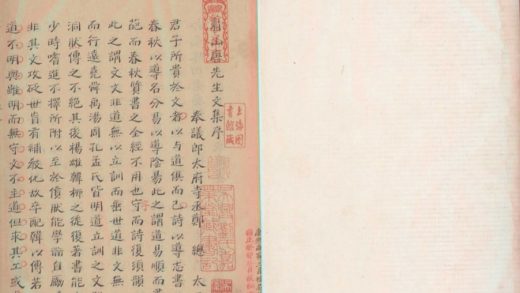 眉山唐先生文集序
奉議郎太府寺丞鄭 總 太
君子所貴於文者以與道俱而已詩以導志書
春秋以導名分易以導陰易此之謂道易順而
葩而春秋質書之全經不用也守而詩復須韻
此之謂文文非道無以立訓而垂世道非文無
而行遠堯舜禹湯周孔孟氏皆明道立訓之文
洞狀傳之不絕其後楊雄韓柳之徒復著書能
少時嗜進不擇所附以至於僨狀能學論自勵
非其文攻砭世皆有補絞仇故卒配韓以傳若
道不明與雖明而無守文不主道但求其工或
上海圖書館藏